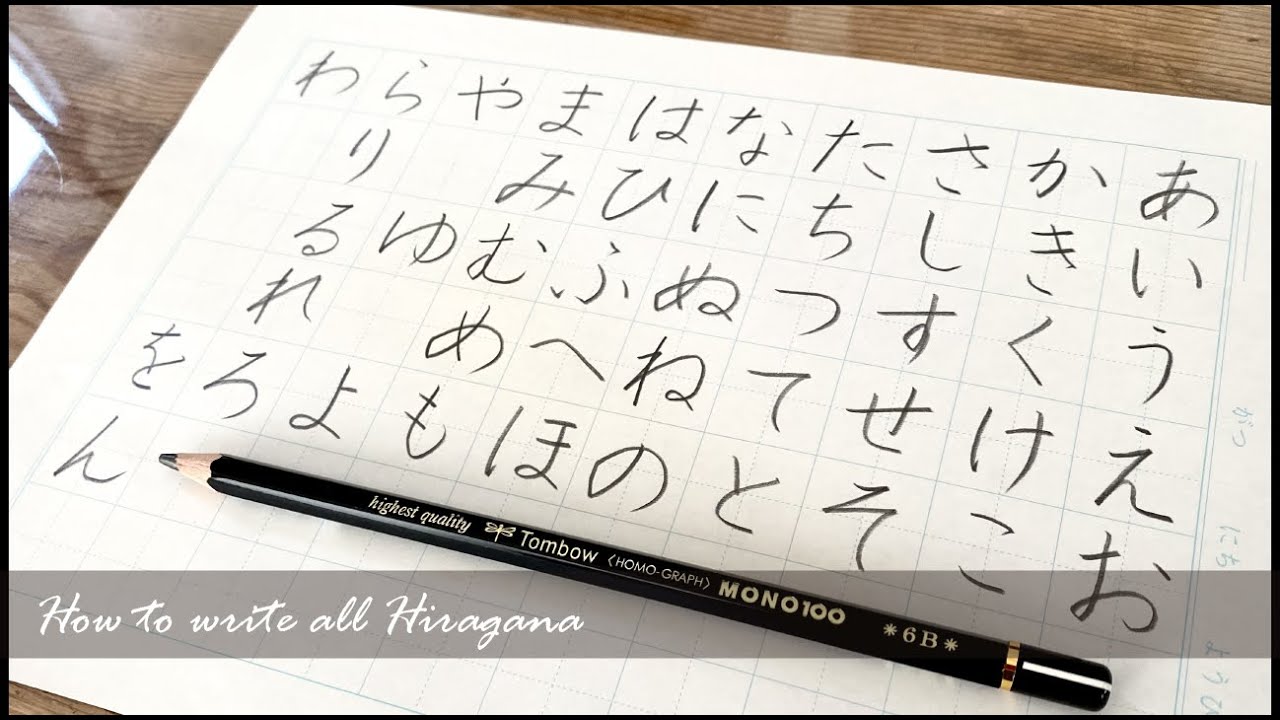 あいうえお
かきくけこ
さしすせそ
たちつてと
なにぬねの
はひふへほ
まみむめも
やゆよ
らりるれろ
わをん
highest quality Tombow 〈HOMO-GRAPH〉 MONO100 *6B*
How to write all Hiragana